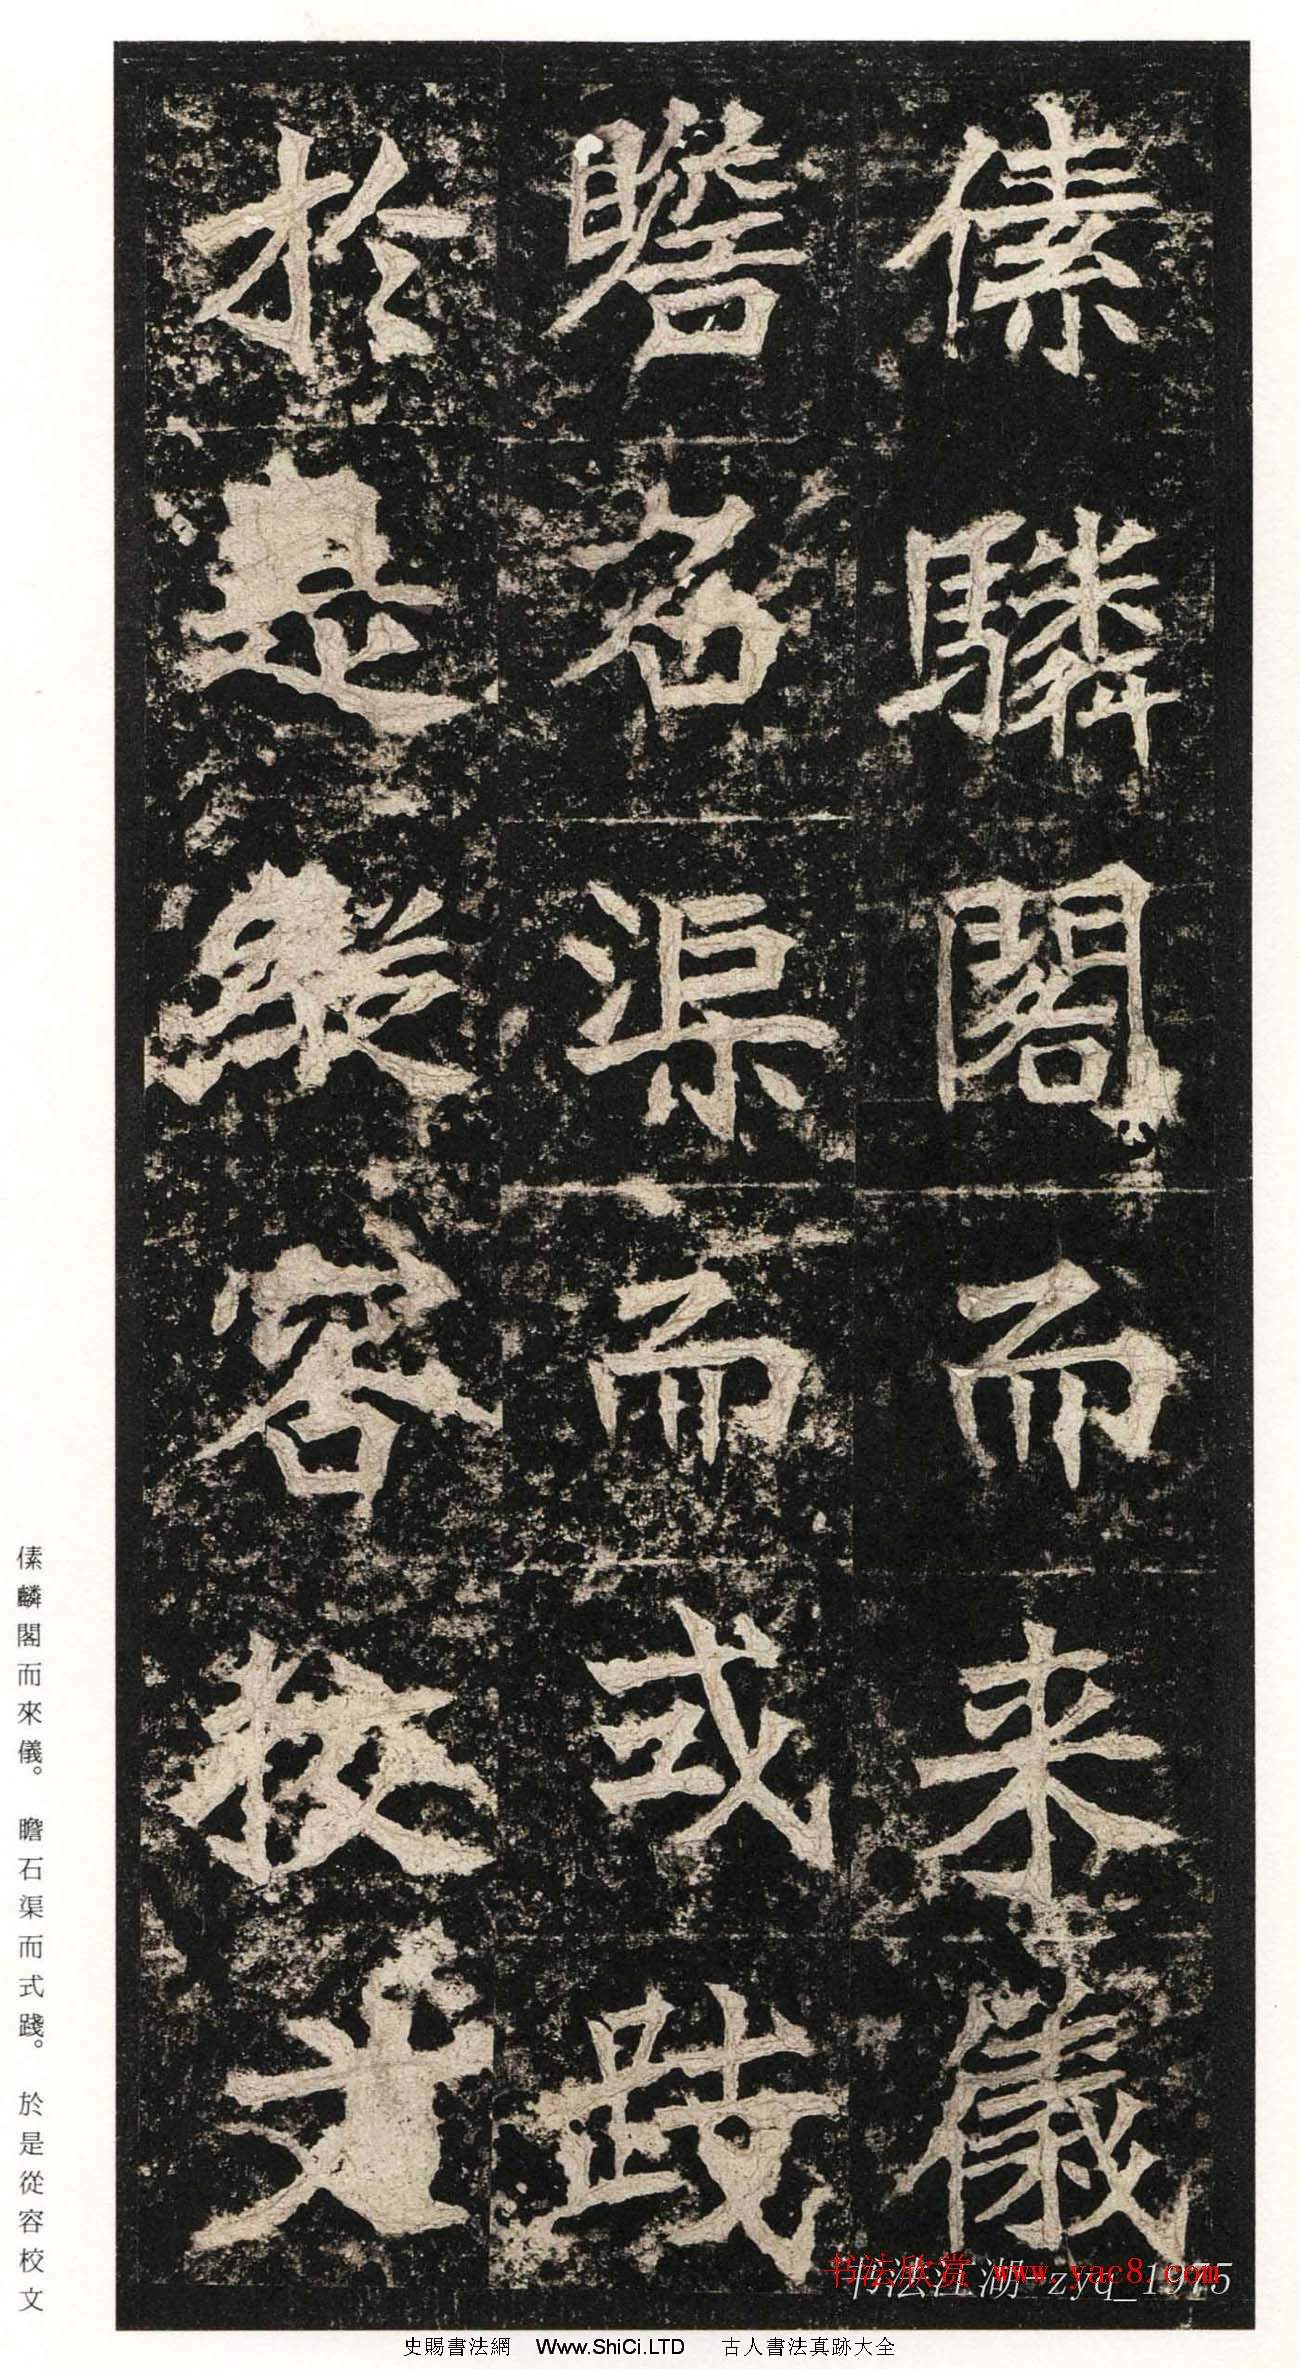 傃驎閣而来儀
瞻石渠而式踐
於是縱容校文
傃麟閣而來儀。瞻石渠而式踐。於是從容校文
书法欣赏 www.yac8.com
书法江湖 zyq_1975
史賜書法網 Www.ShiCi.LTD 古人書法真跡大全